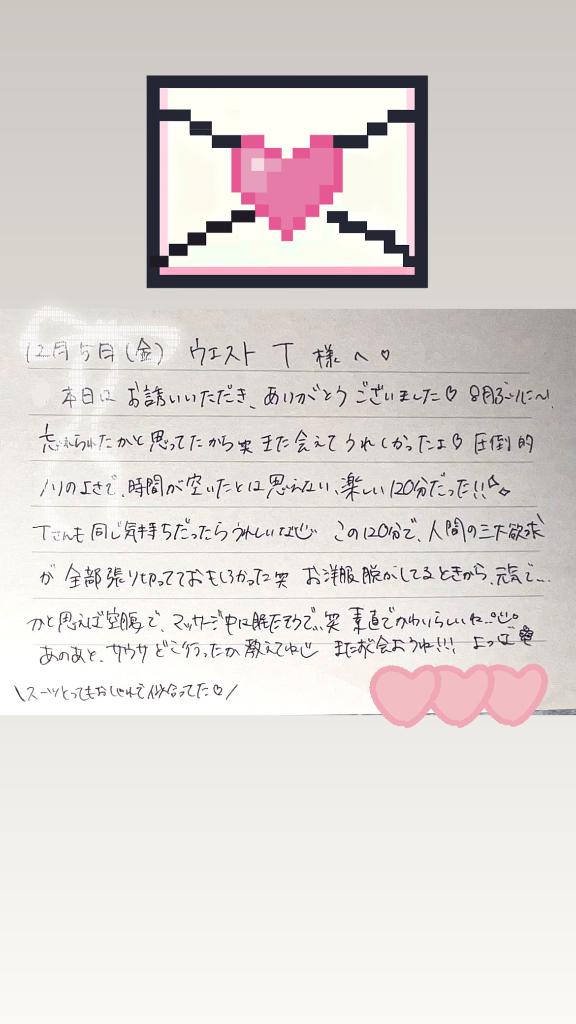 12月5日(金) ウエスト T 様へ♡
本日は お誘いいただき、ありがとう ございました♡ 8月ぶりに〜!
忘れられたかと思ってたから笑 また会えて うれしかったよ♡ 圧倒的
ノリのよさで、時間が空いたとは思えない、楽しい120分だった!!
Tさんも同じ気持ちだったらうれしいな この120分で、人間の三大欲求
が 全部張り切っておもしろかった笑 お洋服脱がしてるときから、元気で…
かと思えば空腹で、マッサージ中は眠たそうで…笑 素直でかわいらしいね
あのあと、サウサどこ行ったか教えてね またお会おうね!!!
\スーツとってもおしゃれで似合ってた♡/